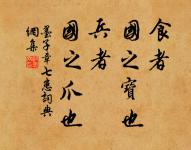 食者
國之寶也
兵者
國之爪也
墨子章七患詞典
網集